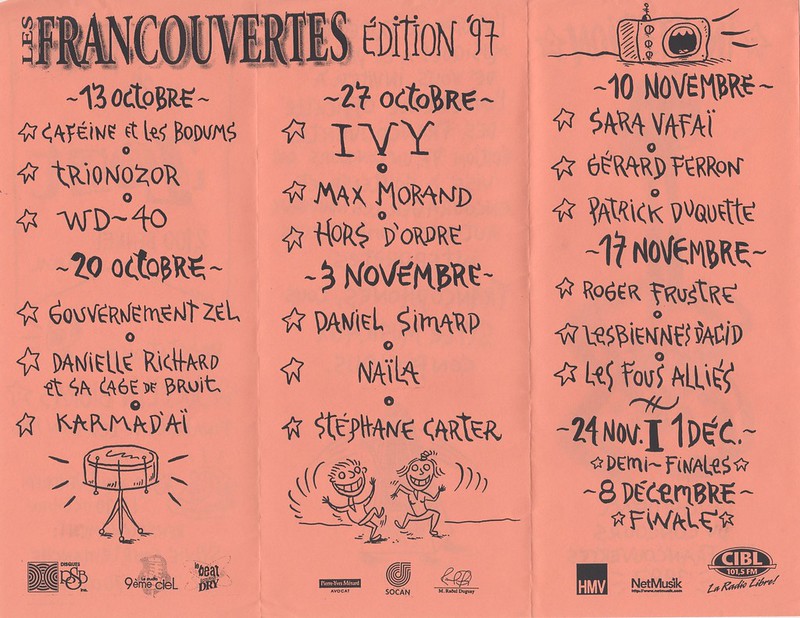 LES FRANCOUVERTES ÉDITION '97
~13 OCTOBRE~
☆ CAFÉINE ET LES BODUMS
☆ TRIONOZOR
☆ WD~40
~20 OCTOBRE~
☆ GOUVERNEMENT ZEL
☆ DANIELLE RICHARD
ET SA CAGE DE BRUIT
☆ KARMADAÏ
~27 OCTOBRE~
☆ IVY
☆ MAX MORAND
☆ HORS D'ORDRE
~3 NOVEMBRE~
☆ DANIEL SIMARD
☆ NAÏLA
☆ STÉPHANE CARTER
~10 NOVEMBRE~
☆ SARA VAFAÏ
☆ GÉRARD FERRON
☆ PATRICK DUQUETTE
~17 NOVEMBRE~
☆ ROGER FRUSTRE
☆ LESBIENNES D'ACID
☆ LES FOUS ALLIÉS
~24 NOV. I 1 DÉC.~
☆DEMI-FINALES☆
~8 DÉCEMBRE~
☆FINALE☆
DISQUES
PSB
inc.
Le studio
9ème CieL
la beat
DRY
Pierre-Yves Ménard
AVOCAT
SOCAN
M. Rafaël Duguay
HMV
NetMusik
http://www.netmusik.com
CIBL
101,5 FM
La Radio Libre!